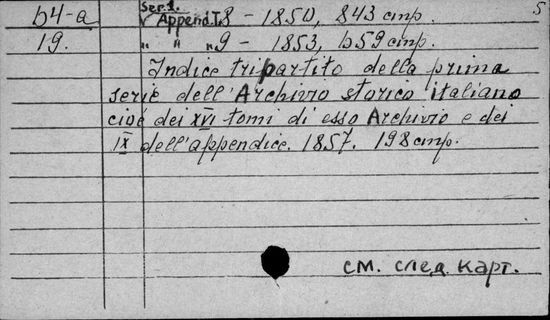 Ser. 1. 5
64-a Append. T. 8 - 1850, 843 стр.
19. " " " 9 - 1853, 659 стр.
Indice tripartito della prima
serie dell'Archivio storico italiano
cioè dei XVI tomi di esso Archivio e dei
IX dell'appendice. 1857. 198 стр.
см. след. карт.